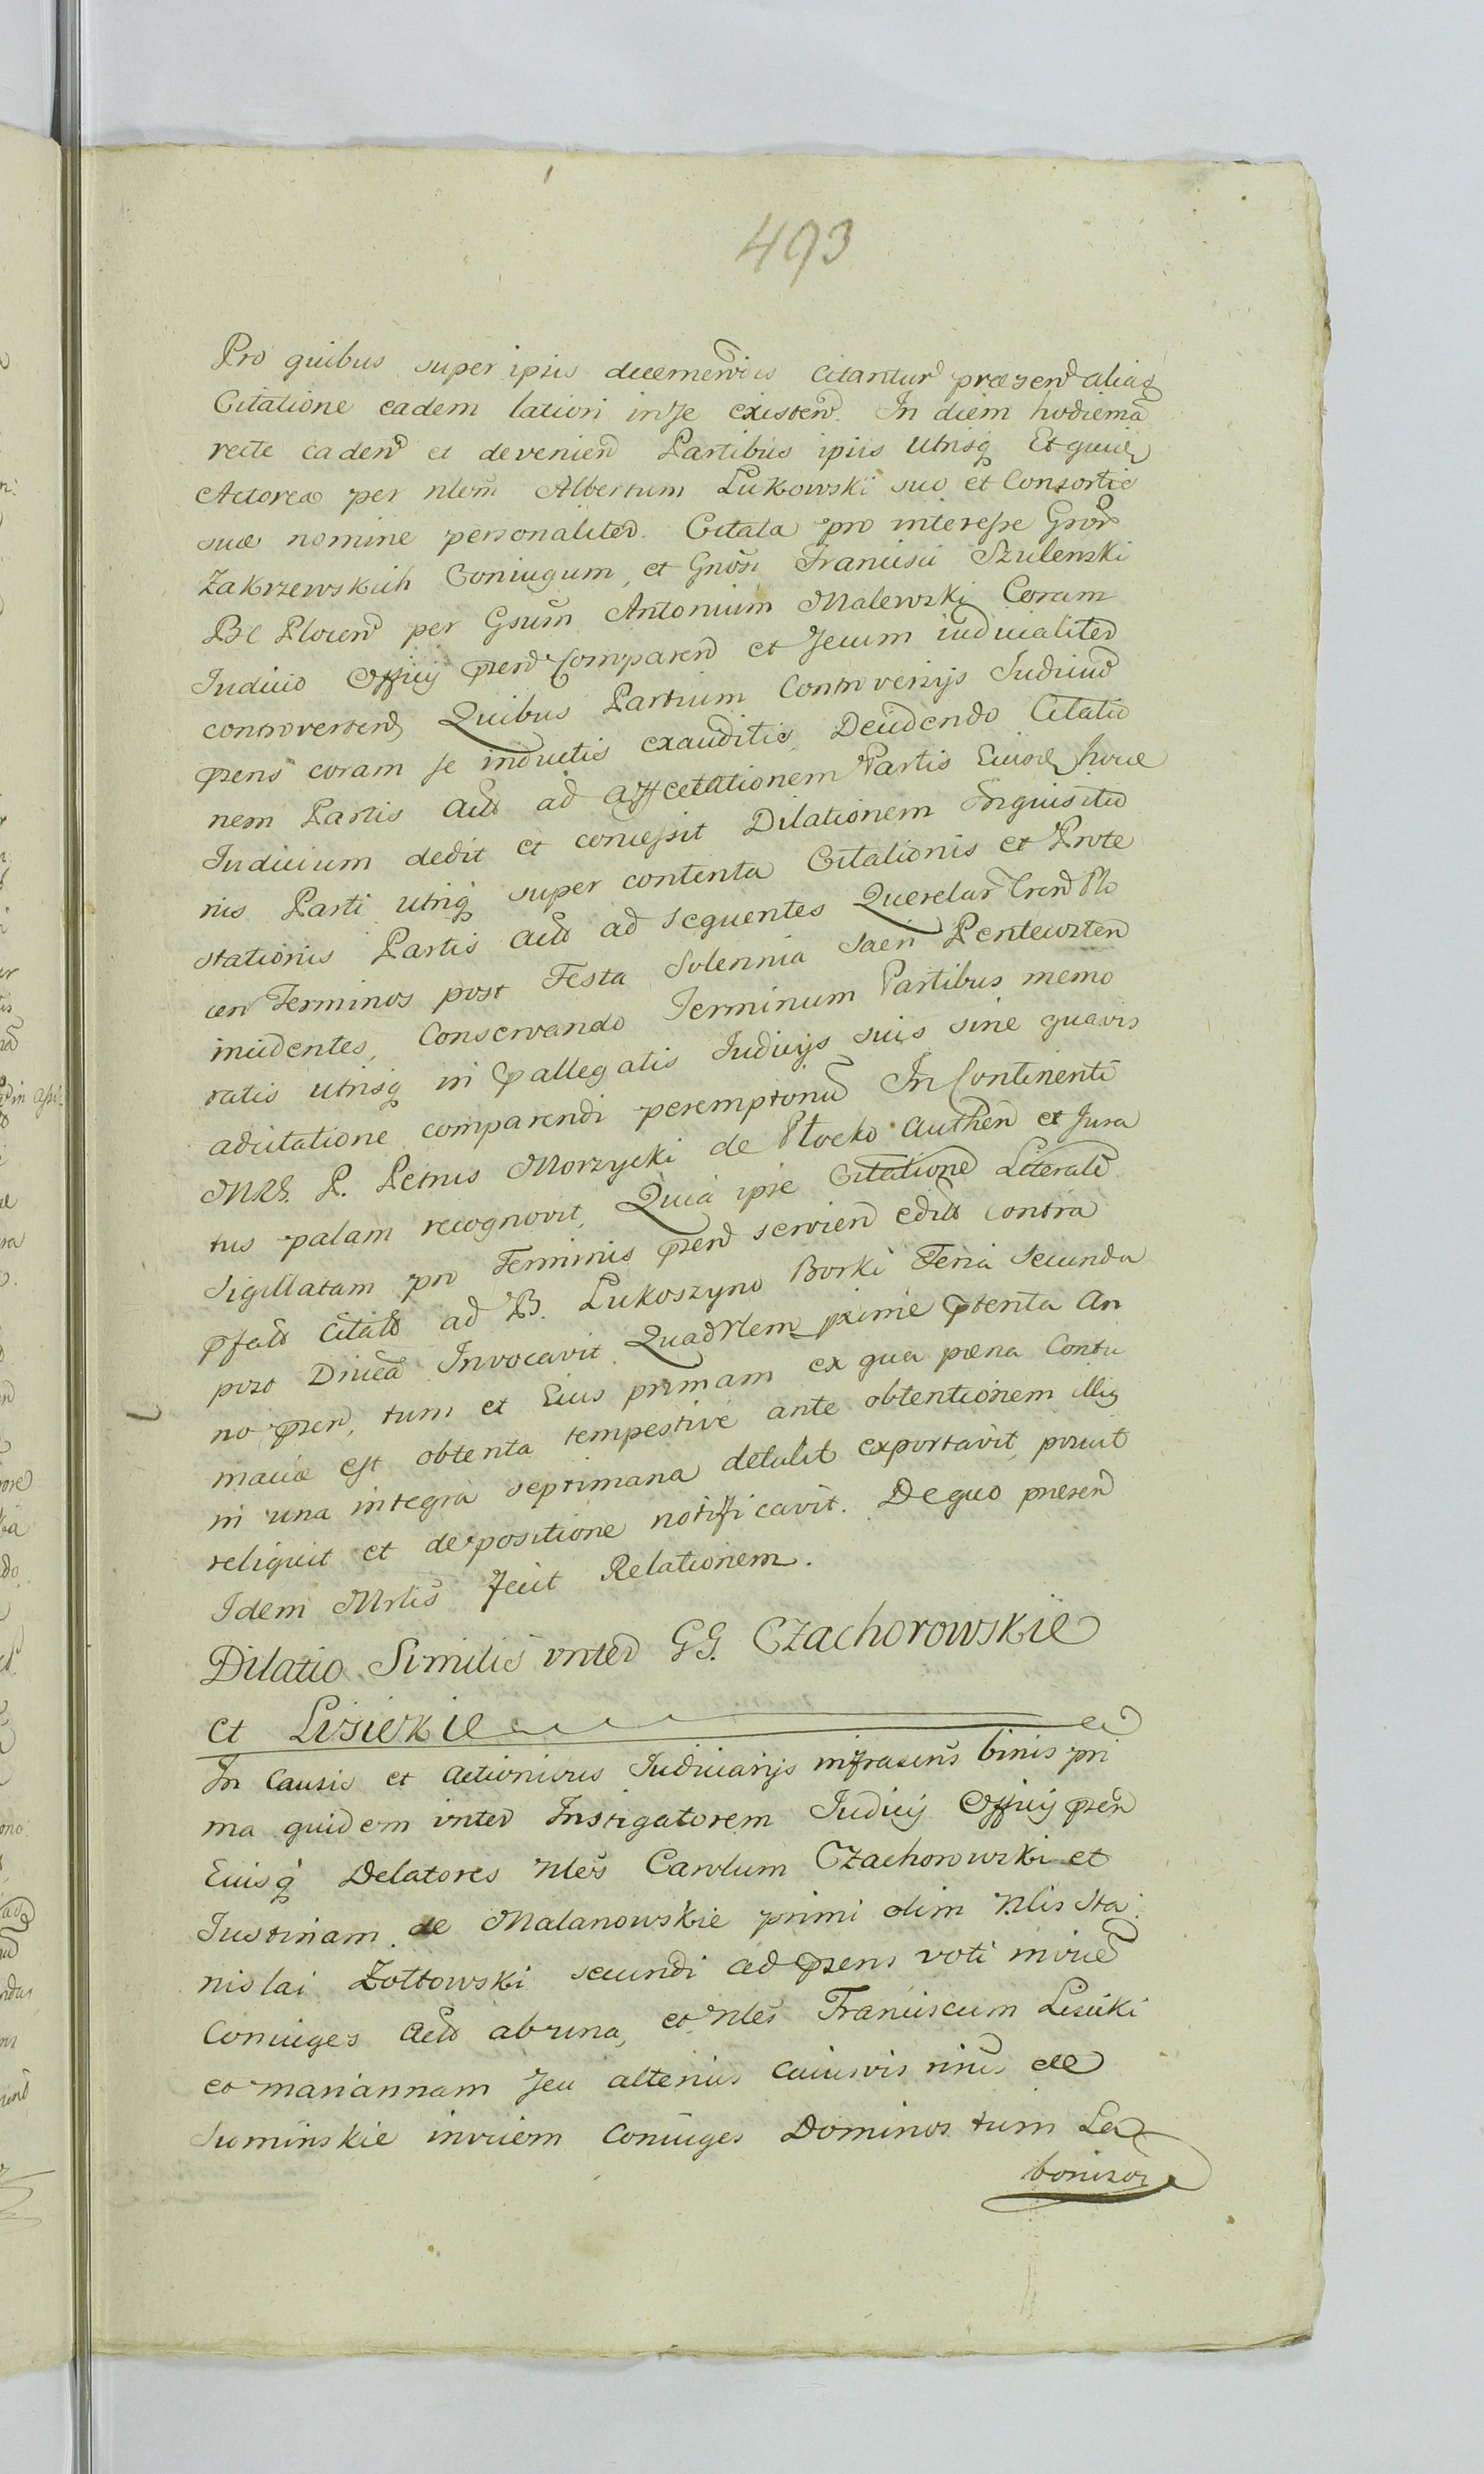 493
Pro quibus super ipsis decernendis citantur praesen aliaq
Citatione eadem latiori in se existen. In diem hodierna
recte caden et devenien Partibus ipsis utrisq Et quidē
Actorea per nlem Albertum Lukowski suo et Consortis
suae nomine personaliter. Citata pro interesse Gror
Zakrzewskich Coniugum, et Gnosi Francisci Szulenski
BC Plocen per Gsum Antonium Malewski Coram
Iudicio Officij pren Comparen et secum iudicialiter
controverten, Quibus Partium Controversijs Iudiciu
prens coram se inductis exauditis, Decidendo Citatio
nem Partis Acto ad affectationem Partis Eiusd hocce
Iudicium dedit et concessit Dilationem Inquisitio
nis Parti utriq super contenta Citationis et Prote
stationis Partis Acto ad sequentes Querelar Tren Plo
cen Terminos post Festa Solennia Sacri Pentecosten
incidentes, Conservando Terminum Partibus memo
ratis utrisq in pallegatis Iudicijs suis sine quavis
adcitatione comparendi peremptoriu In Continenti
MRS. P. Petrus Morzycki de Plocko Authen et Jura
tus palam recognovit, Quia ipse Citatione Literale
Sigillatam pro Terminis pren servien edito contra
pfato Citato ad B. Lukoszyno Borki Feria Secunda
post Dnica Invocavit Quadrlem pxime ptenta An
no pren, tum et Eius primam ex qua paena Contu
maciae est obtenta tempestive ante obtentionem illig
in una integra septimana detulit exportavit, posuit
reliquit et de positione notificavit. De quo presen
Idem Mrlis fecit Relationem.
Dilatio Similis inter GG. Czachorowskie
et Lisickie
In Causis et Actionibus Iudiciarijs infrascris binis pri
ma quidem inter Instigatorem Iudicij Officij pren
Eiusq Delatores Nles Carolum Czachorowski et
Iustinam de Malanowskie primi olim Nlis Sta:
nislai Zołtowski secundi ad prens voti invice
Coniuges Acto ab una, et Nles Franciscum Lisicki
et mariannam seu alterius cuiusvis nnis de
Suminskie invicem Coniuges Dominos tum La
borisos